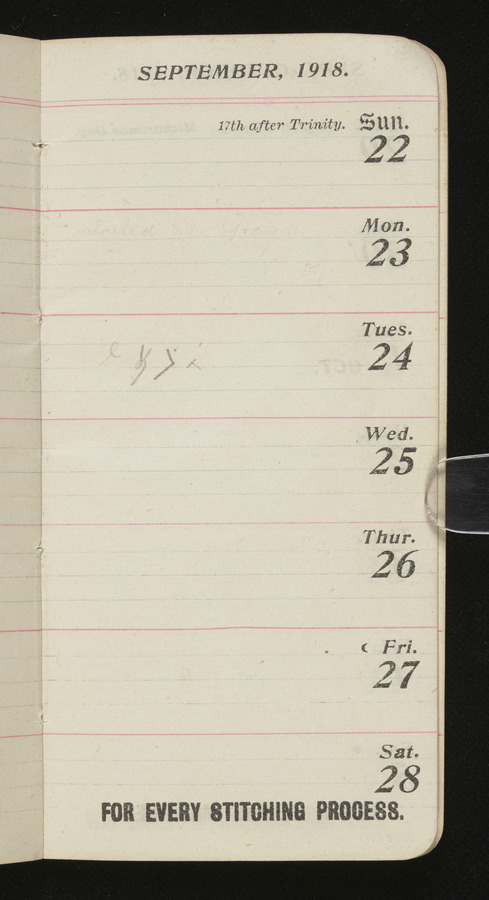 SEPTEMBER, 1918.
17th after Trinity. Sun.
22
Mon.
23
Tues.
24
Wed.
25
Thur.
26
☾ Fri.
27
Sat.
28
FOR EVERY STITCHING PROCESS.